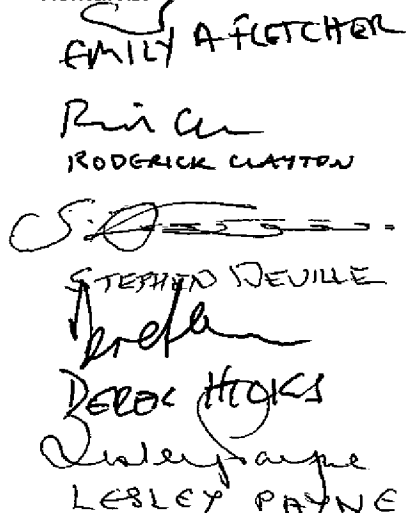 EMILY A FLETCHER
RODERICK CLAYTON
STEPHEN NEVILLE
DEREK HICKS
Lesley Payne
LESLEY PAYNE